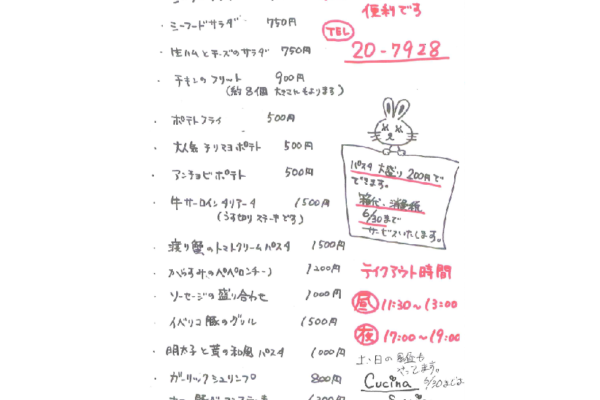 ・シーフードサラダ 750円
・生ハムとチーズのサラダ 750円
・チキンのフリット 900円
(約8個 大きさにもよります)
・ポテトフライ 500円
・大人気 チリマヨポテト 500円
・アンチョビポテト 500円
・牛サーロインタリアータ 1500円
(うす切りステーキです)
・渡り蟹のトマトクリームパスタ 1500円
・からすみのペペロンチーノ 1200円
・ソーセージの盛り合わせ 1000円
・イベリコ豚のグリル 1500円
・明太子と茸の和風パスタ 1000円
・ガーリックシュリンプ 800円
便利です
TEL
20-7928
パスタ 大盛り 200円で
できます。
箱代・消費税
6/30まで
サービスいたします。
テイクアウト時間
昼 11:30~13:00
夜 17:00~19:00
土・日の昼も
やってます。
Cucina 5/30まで